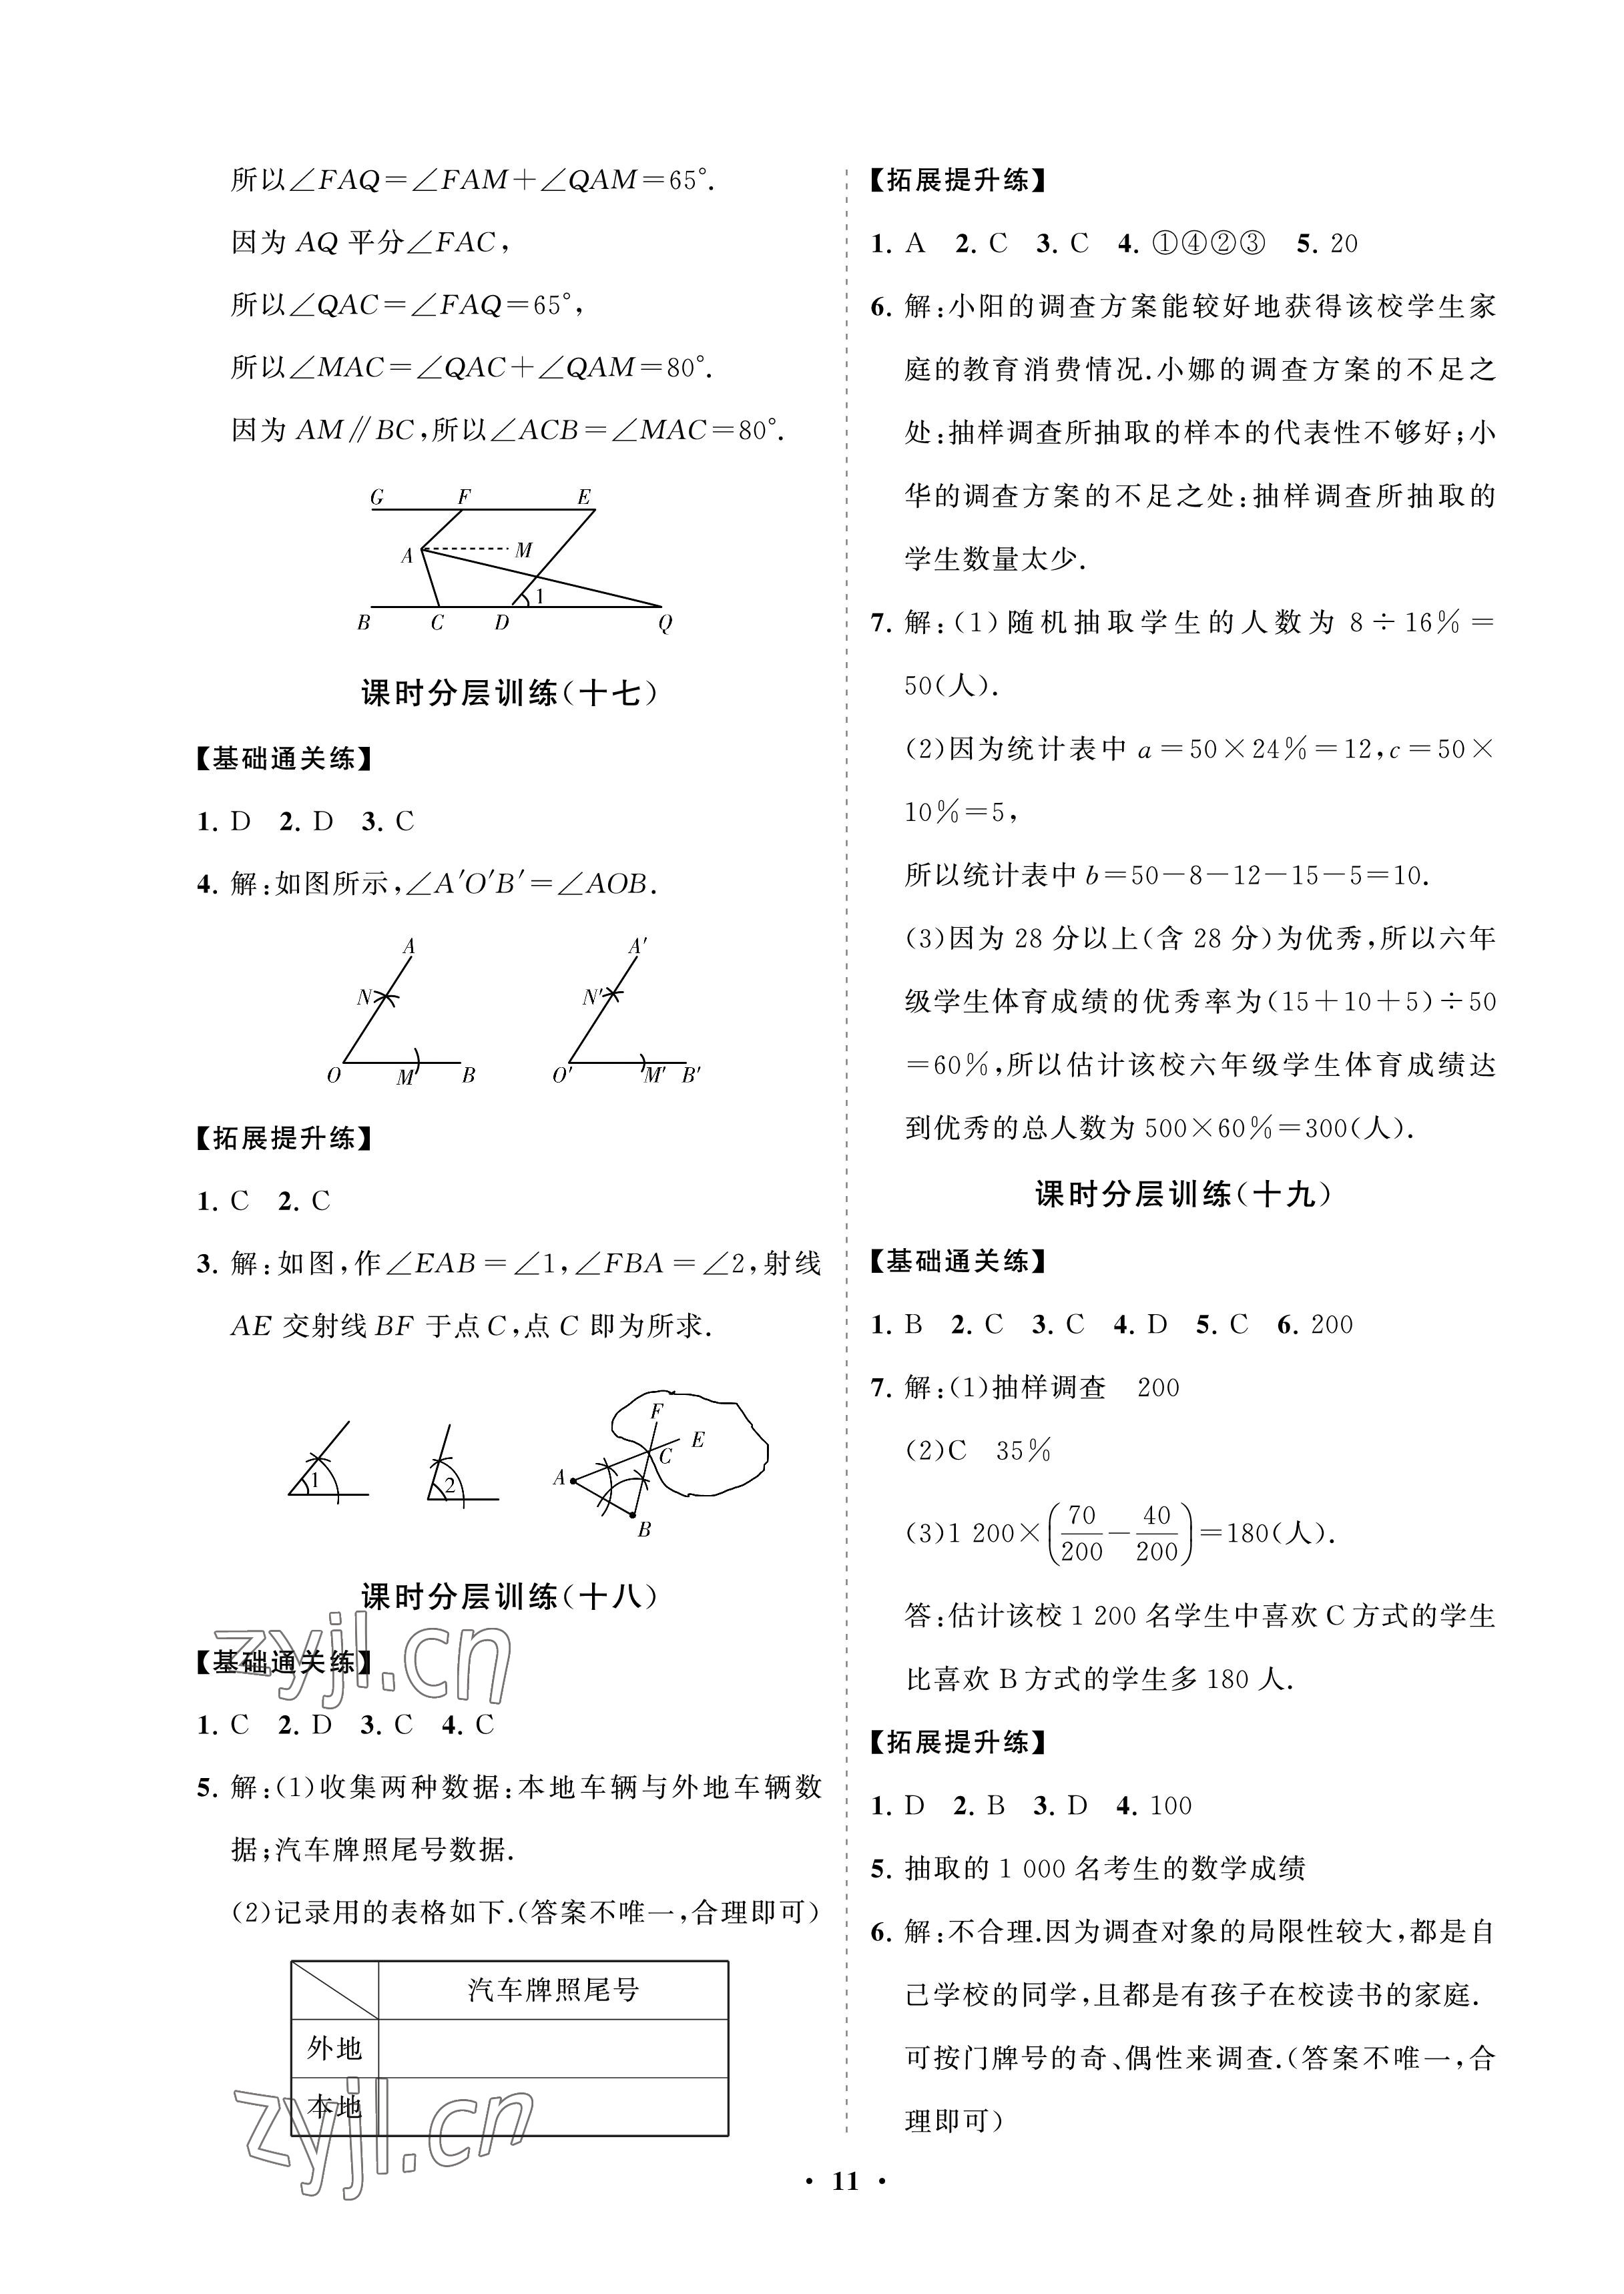 所以∠FAQ=∠FAM+∠QAM=65°.
因为 AQ 平分∠FAC,
所以∠QAC=∠FAQ=65°,
所以∠MAC=∠QAC+∠QAM=80°.
因为 AM∥BC,所以∠ACB=∠MAC=80°.
G F E
A M
1
B C D Q
课时分层训练(十七)
【基础通关练】
1. D 2. D 3. C
4. 解:如图所示,∠A′O′B′=∠AOB.
A A′
N N′
O M B O′ M′ B′
【拓展提升练】
1. C 2. C
3. 解:如图,作∠EAB=∠1,∠FBA=∠2,射线
AE 交射线 BF 于点 C,点 C 即为所求.
F
E
C
1 2 A
B
课时分层训练(十八)
【基础通关练】
1. C 2. D 3. C 4. C
5. 解:(1)收集两种数据:本地车辆与外地车辆数
据;汽车牌照尾号数据.
(2)记录用的表格如下.(答案不唯一,合理即可)
汽车牌照尾号
外地
本地
【拓展提升练】
1. A 2. C 3. C 4. ①④②③ 5. 20
6. 解:小阳的调查方案能较好地获得该校学生家
庭的教育消费情况.小娜的调查方案的不足之
处:抽样调查所抽取的样本的代表性不够好;小
华的调查方案的不足之处:抽样调查所抽取的
学生数量太少.
7. 解:(1)随机抽取学生的人数为 8÷16%=
50(人).
(2)因为统计表中 a=50×24%=12,c=50×
10%=5,
所以统计表中 b=50-8-12-15-5=10.
(3)因为 28 分以上(含 28 分)为优秀,所以六年
级学生体育成绩的优秀率为(15+10+5)÷50
=60%,所以估计该校六年级学生体育成绩达
到优秀的总人数为 500×60%=300(人).
课时分层训练(十九)
【基础通关练】
1. B 2. C 3. C 4. D 5. C 6. 200
7. 解:(1)抽样调查 200
(2)C 35%
(3)1 200×(70/200-40/200)=180(人).
答:估计该校 1 200 名学生中喜欢 C 方式的学生
比喜欢 B 方式的学生多 180 人.
【拓展提升练】
1. D 2. B 3. D 4. 100
5. 抽取的 1 000 名考生的数学成绩
6. 解:不合理.因为调查对象的局限性较大,都是自
己学校的同学,且都是有孩子在校读书的家庭.
可按门牌号的奇、偶性来调查.(答案不唯一,合
理即可)
• 11 •
zyjl.cn
zyjl.cn